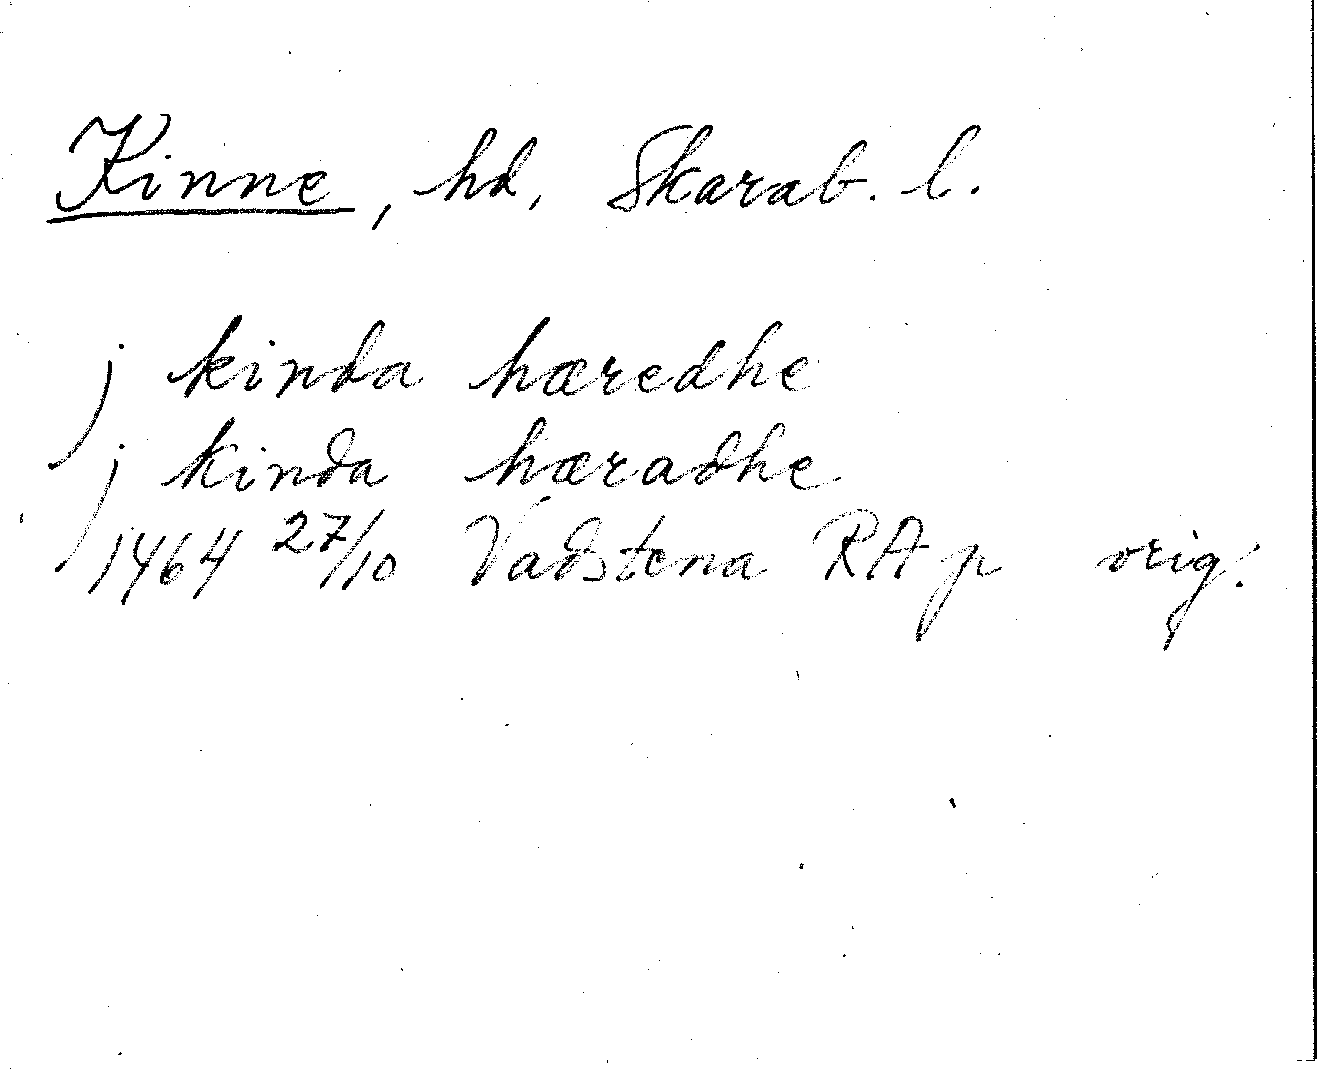 Kinne, hd, Skarab. l.
j kinda hæredhe
j kinda hæradhe
1464 27/10 Vadstena RAp orig.